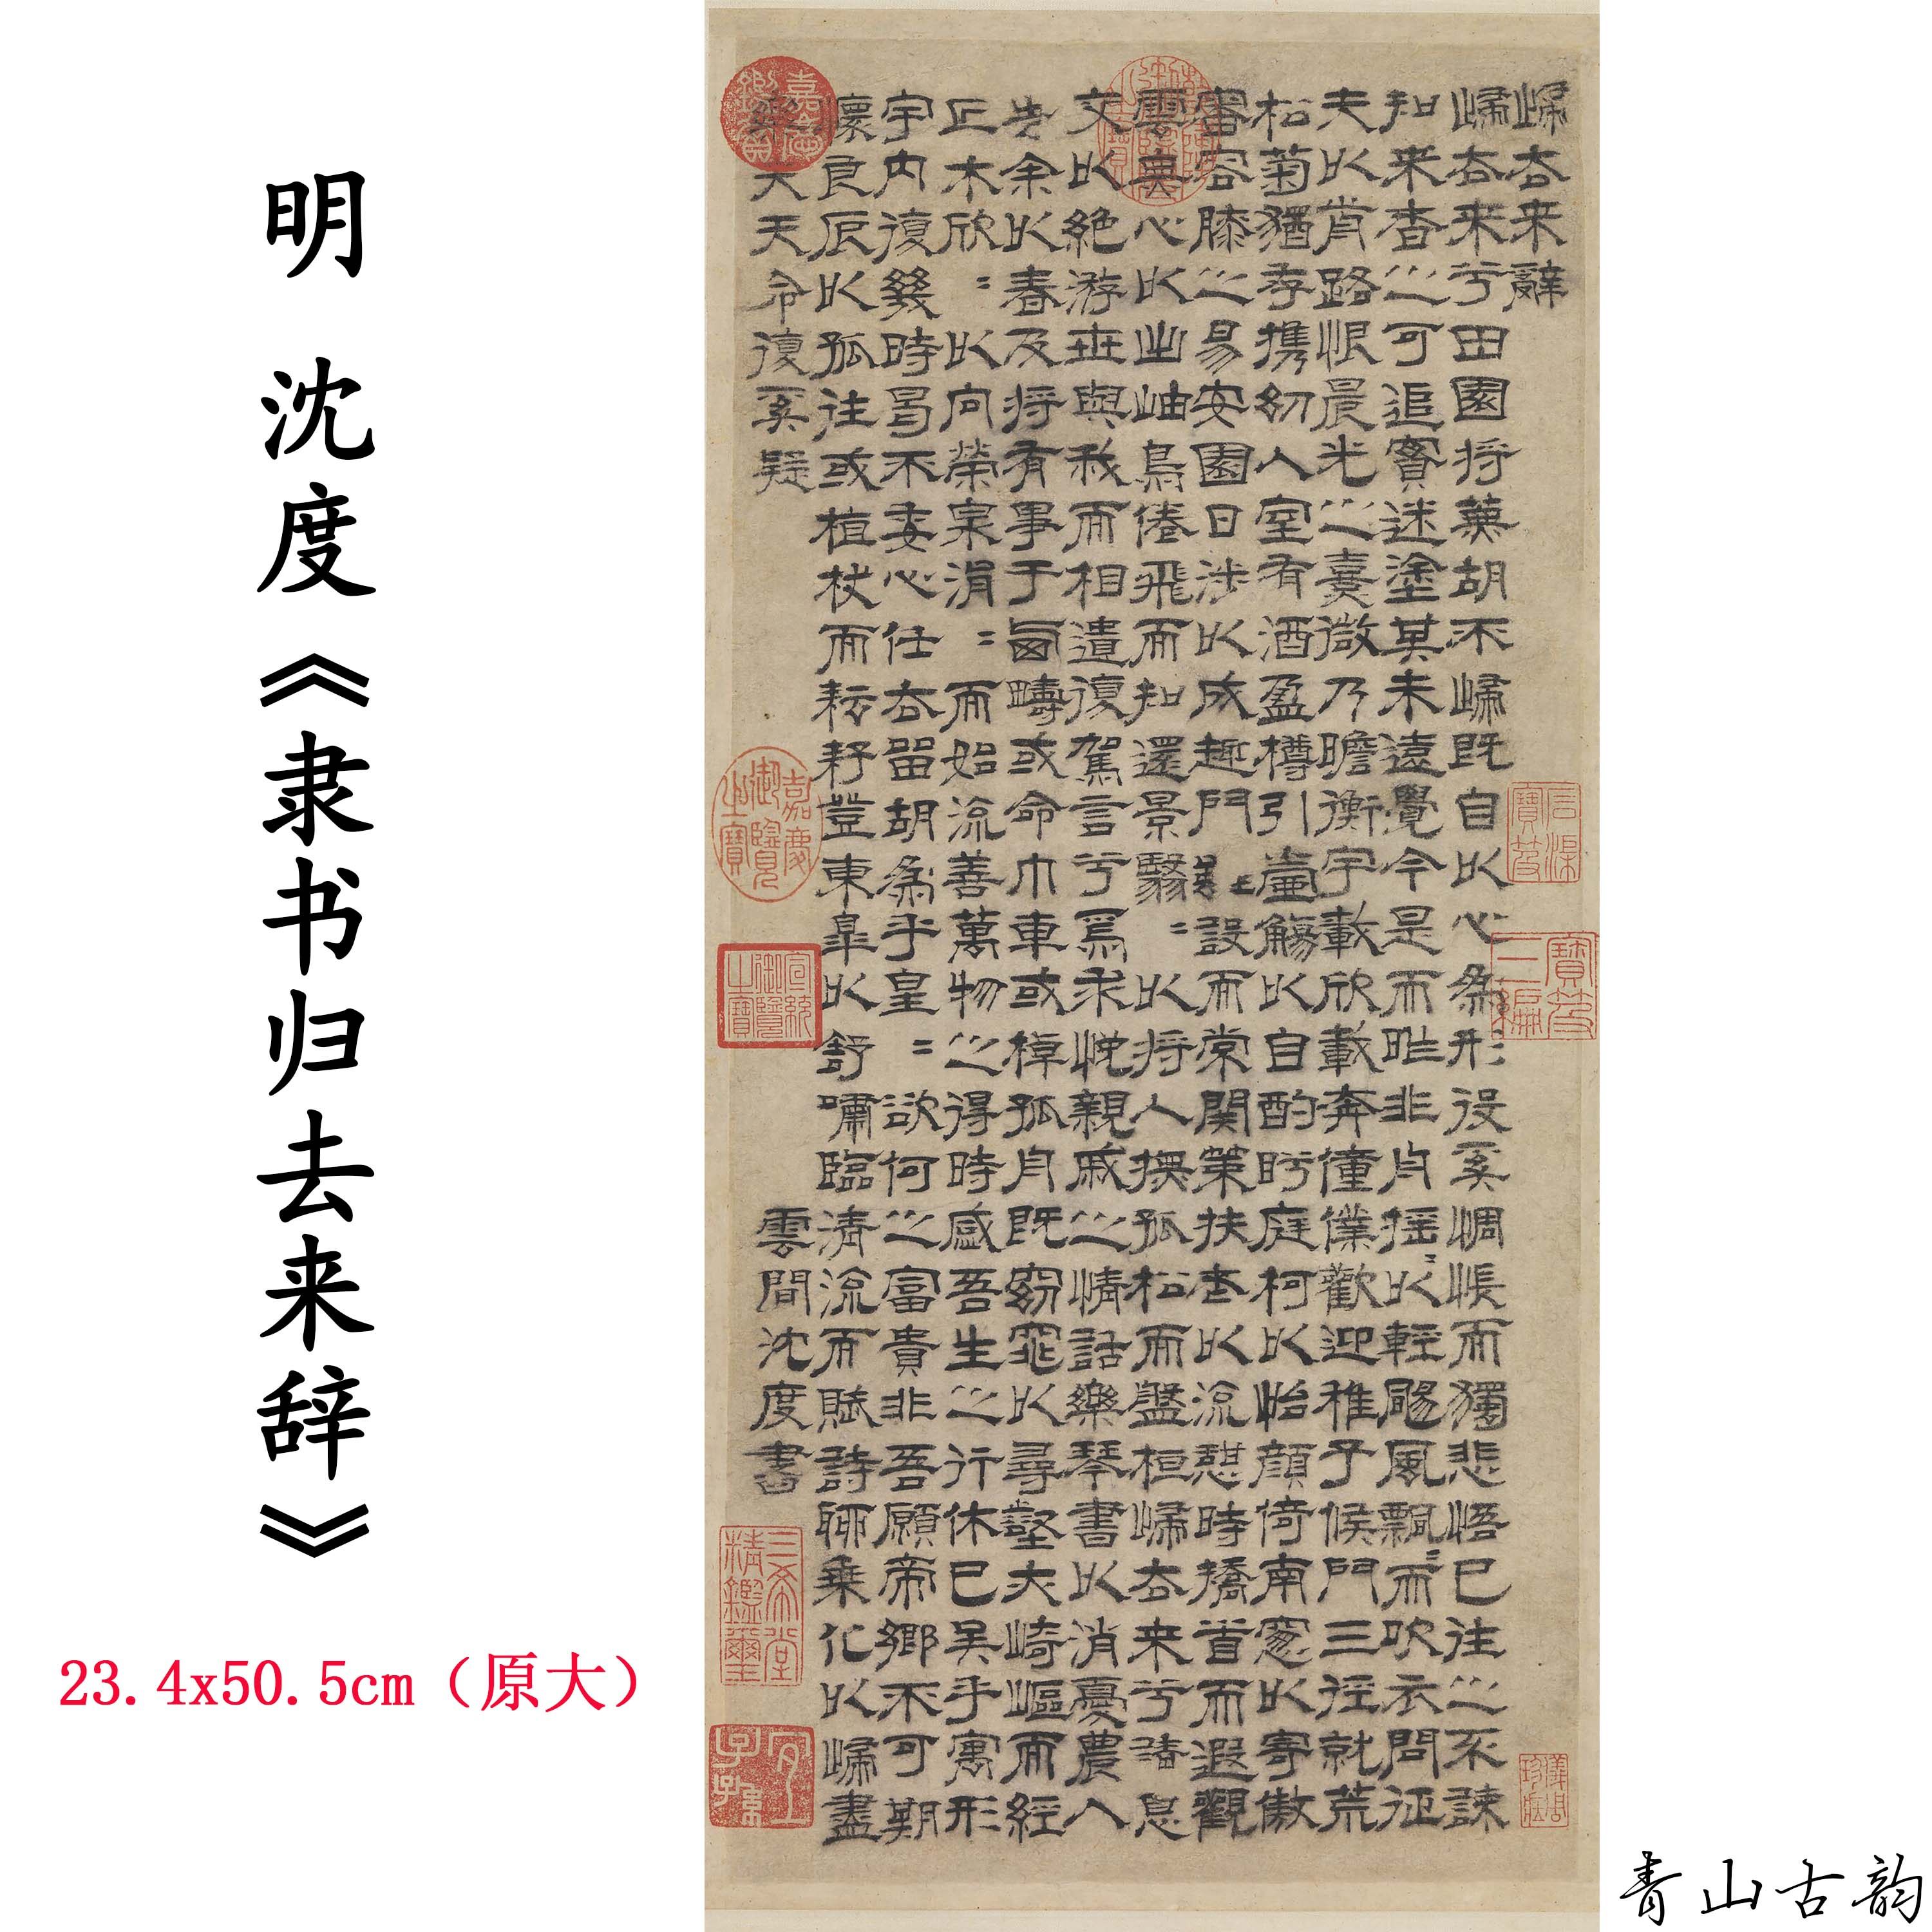 明 沈度《隶书归去来辞》
23.4x50.5cm（原大）
歸去来辭
歸去来兮田園将蕪胡不歸既自以心為形役奚惆悵而獨悲悟已往之不諫
知来者之可追實迷塗其未遠覺今是而昨非舟揺〻以輕颺風飄〻而吹衣問征
夫以前路恨晨光之熹微乃瞻衡宇載欣載奔僮僕歡迎稚子候門三徑就荒
松菊猶存攜幼入室有酒盈樽引壺觴以自酌眄庭柯以怡顔倚南窓以寄傲
審容膝之易安園日涉以成趣門雖設而常関策扶老以流憩時矯首而遐觀
雲無心以出岫鳥倦飛而知還景翳〻以将入撫孤松而盤桓歸去来兮請息
交以絶游世與我而相遺復駕言兮焉求悦親戚之情話樂琴書以消憂農人
告余以春及将有事于西疇或命巾車或棹孤舟既窈窕以尋壑亦崎嶇而經
丘木欣〻以向榮泉涓〻而始流善萬物之得時感吾生之行休已矣乎寓形
宇内復幾時曷不委心任去留胡為乎皇〻欲何之富貴非吾願帝鄉不可期
懷良辰以孤往或植杖而耘耔登東皋以舒嘯臨清流而賦詩聊乘化以歸盡
樂夫天命復奚疑 雲間沈度書
嘉慶鑑賞
嘉慶御覽之寶
宣統御覽之寶
三希堂精鑑璽
宜子孫
石渠寶笈
寶笈三編
青山古韵